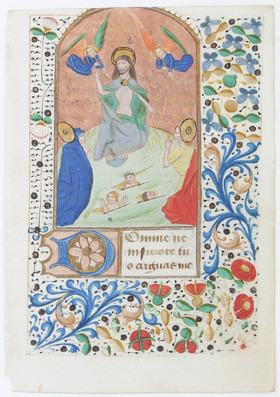 Domine ne
in furore tu
o arguas me